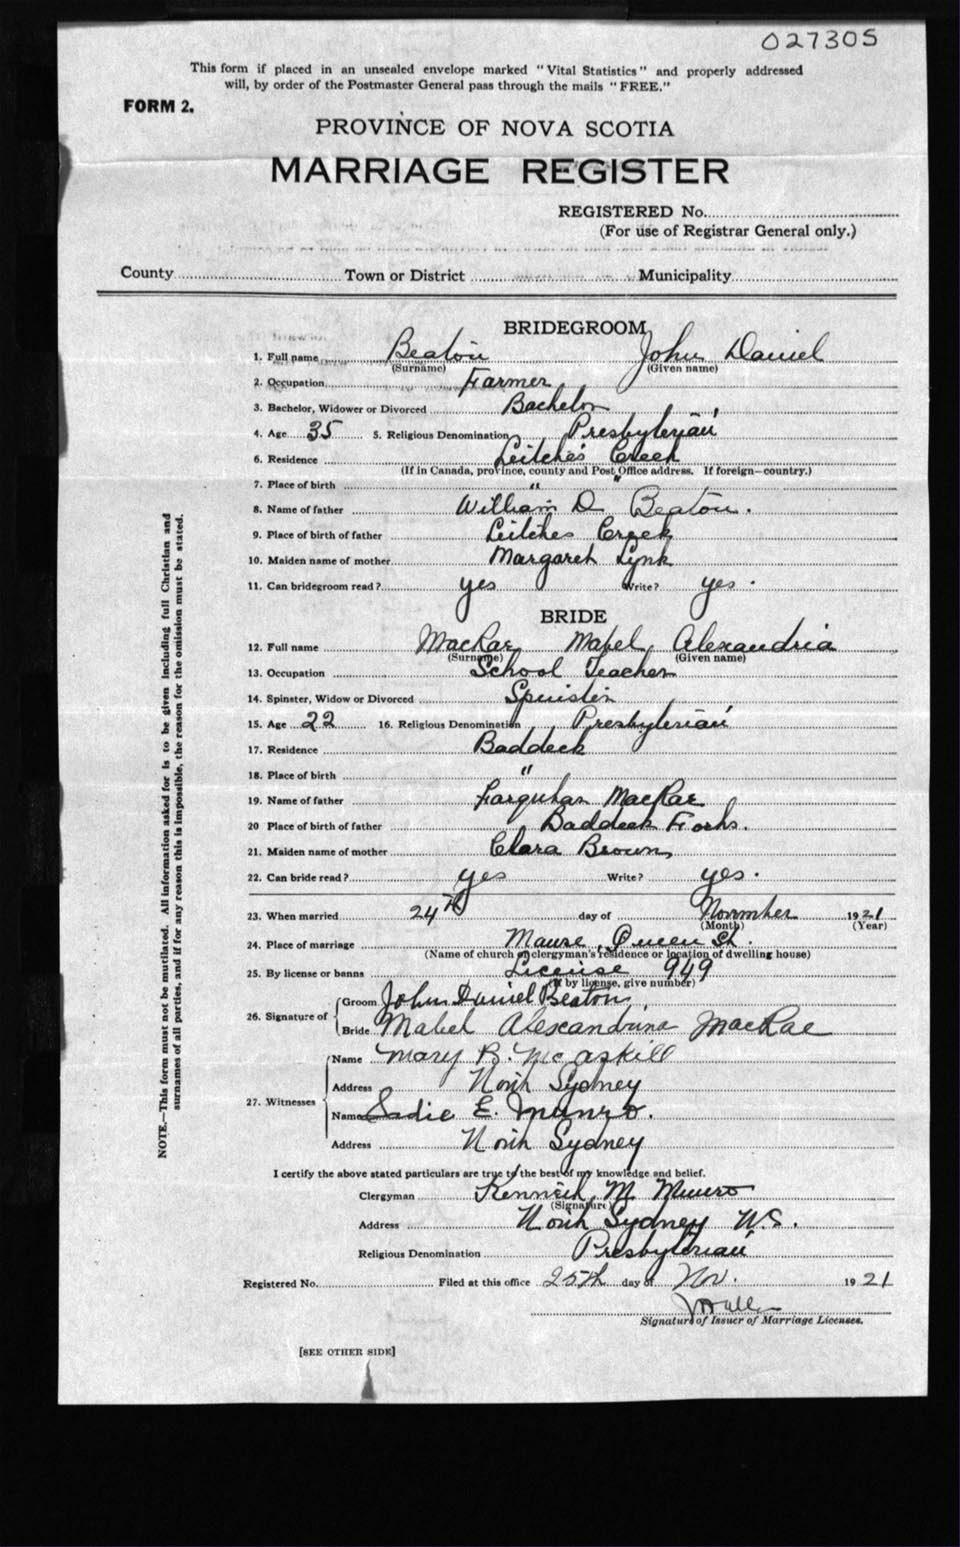 027305
This form if placed in an unsealed envelope marked "Vital Statistics" and properly addressed
will, by order of the Postmaster General pass through the mails "FREE."
FORM 2.
PROVINCE OF NOVA SCOTIA
MARRIAGE REGISTER
REGISTERED No.
(For use of Registrar General only.)
County Town or District Municipality
BRIDEGROOM
1. Full name Beaton John Daniel
(Surname) (Given name)
2. Occupation Farmer
3. Bachelor, Widower or Divorced Bachelor
4. Age 35 5. Religious Denomination Presbyterian
6. Residence Leitches Creek
(If in Canada, province, county and Post Office address. If foreign—country.)
7. Place of birth " "
8. Name of father William D Beaton.
9. Place of birth of father Leitches Creek
10. Maiden name of mother Margaret Lynk
11. Can bridegroom read? yes Write? yes.
BRIDE
12. Full name MacRae Mabel Alexandria
(Surname) (Given name)
13. Occupation School Teacher
14. Spinster, Widow or Divorced Spinster
15. Age 22 16. Religious Denomination Presbyterian
17. Residence Baddeck
18. Place of birth "
19. Name of father Farquhar MacRae
20 Place of birth of father Baddeck Forks.
21. Maiden name of mother Clara Brown
22. Can bride read? yes Write? yes.
23. When married 24th day of November 1921
(Month) (Year)
24. Place of marriage Manse, Queen St.
(Name of church or clergyman's residence or location of dwelling house)
25. By license or banns License 949
(If by license, give number)
26. Signature of Groom John Daniel Beaton
Bride Mabel Alexandrina MacRae
27. Witnesses Name Mary B. McAskill
Address North Sydney
Name Sadie E. Munro.
Address North Sydney
I certify the above stated particulars are true to the best of my knowledge and belief.
Clergyman Kenneth M. Munro
(Signature)
Address North Sydney N.S.
Religious Denomination Presbyterian
Registered No. Filed at this office 25th day of Nov. 1921
Signature of Issuer of Marriage Licenses.
[SEE OTHER SIDE]
NOTE.—This form must not be mutilated. All information asked for is to be given including full Christian and
surnames of all parties, and if for any reason this is impossible, the reason for the omission must be stated.